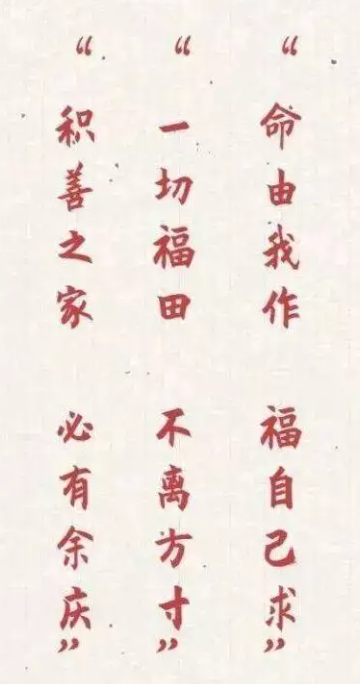 “命由我作 福自己求”
“一切福田 不离方寸”
“积善之家 必有余庆”